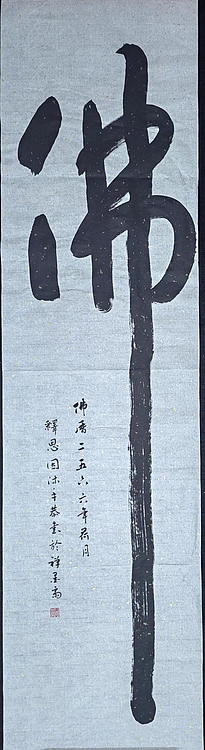 佛
佛曆二五六六年荷月
釋思因沐手恭書於禪墨齋